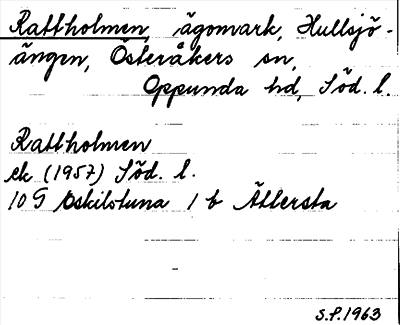 Rattholmen, ägomark, Hullsjö-
ängen, Österåkers sn,
Oppunda hd, Söd. l.
Rattholmen
ek (1957) Söd. l.
10 G Eskilstuna 1 b Ättersta
S.P. 1963